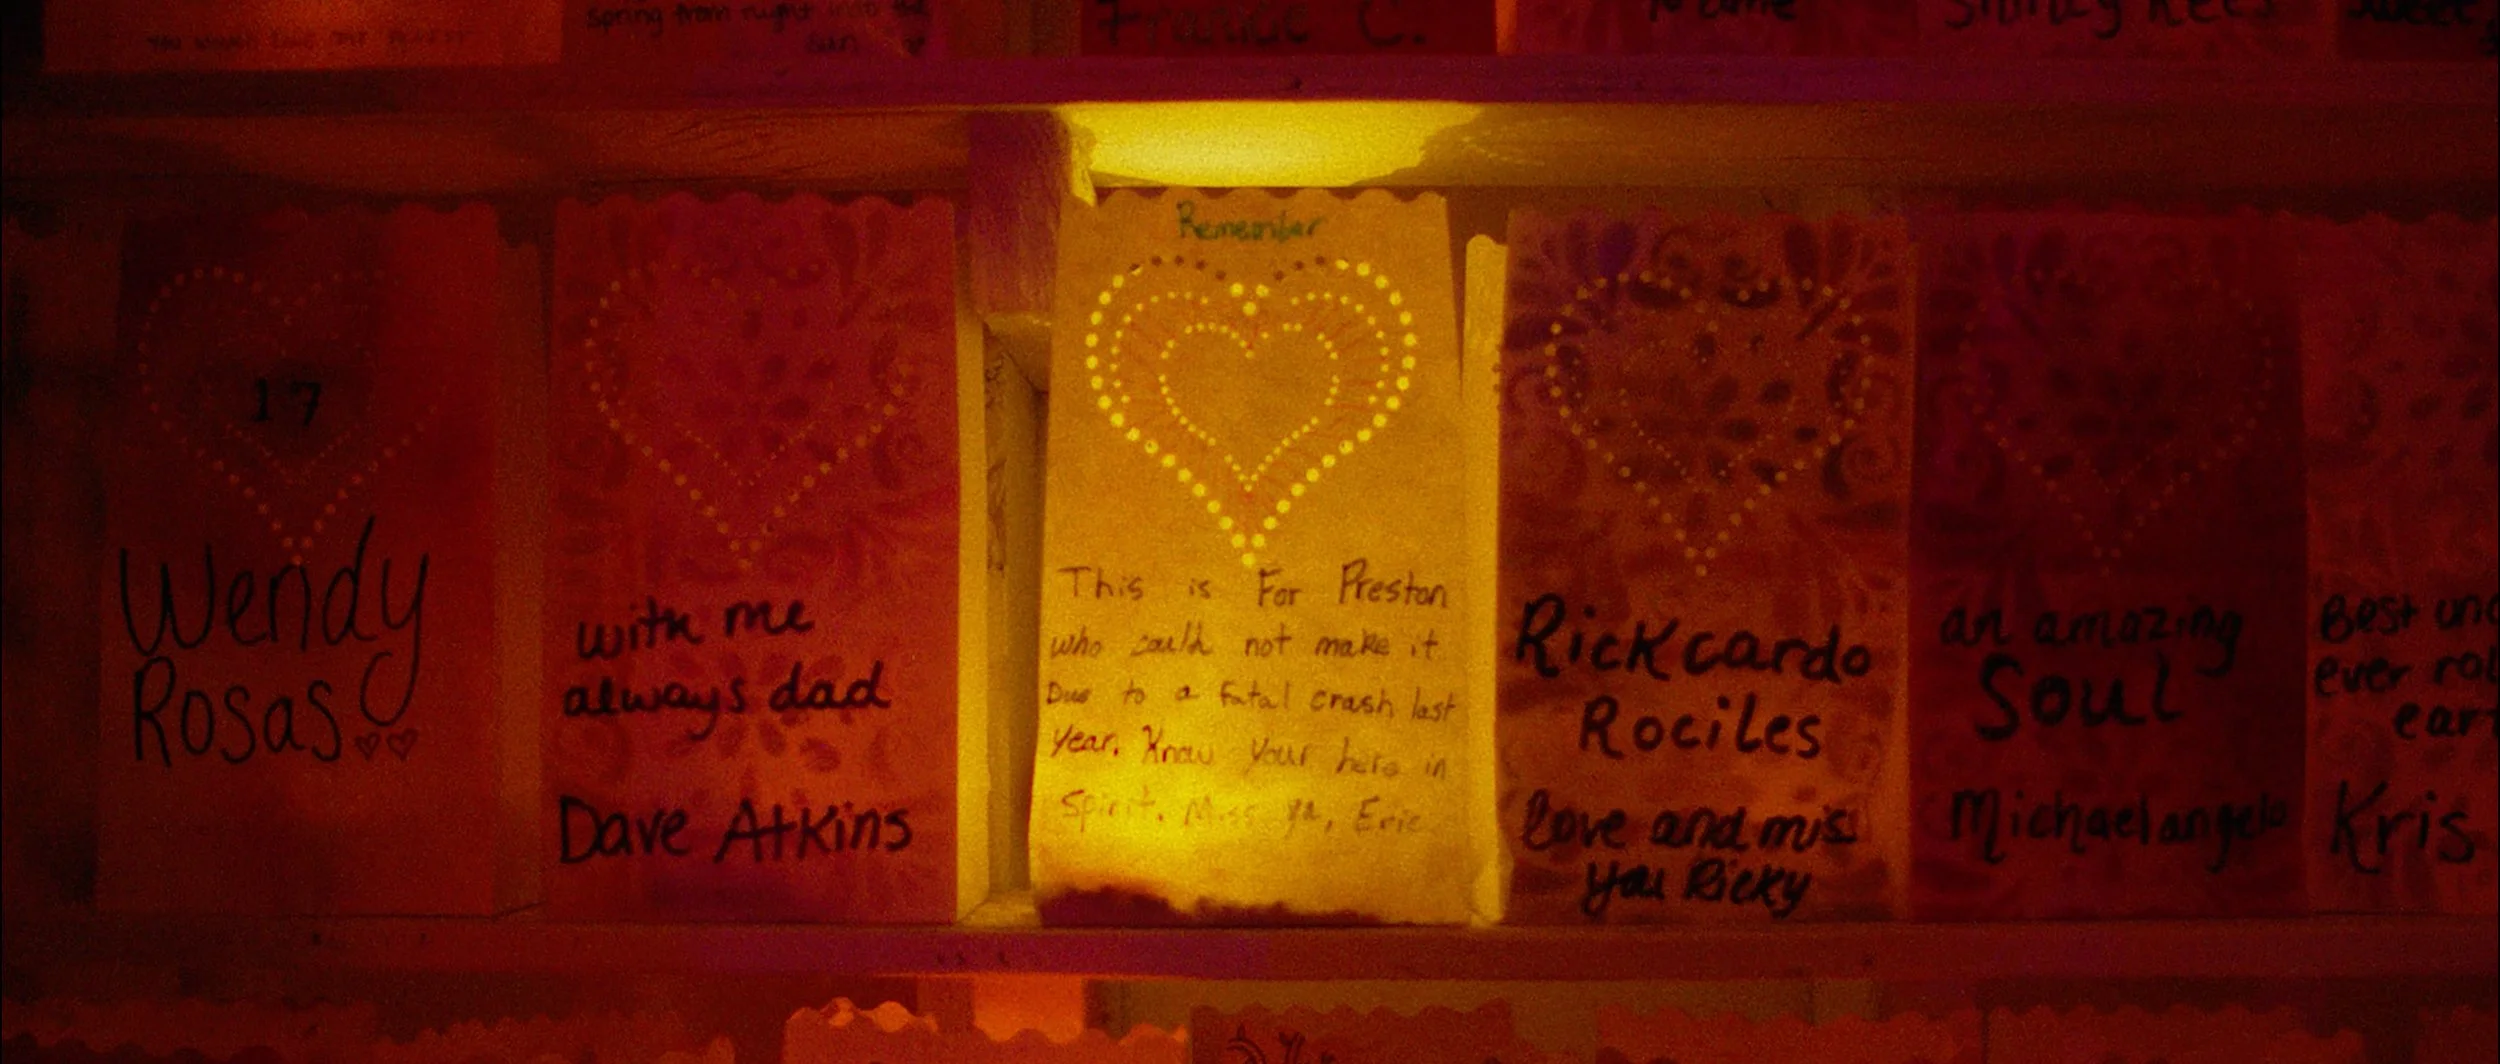 spring from night into the
sun
Frankie C.
to come
Shirley Rees
Sweet
17
Wendy
Rosas
with me
always dad
Dave Atkins
Remember
This is For Preston
who could not make it
Due to a fatal crash last
year. Know your here in
Spirit. Miss ya, Eric
Rickcardo
Rociles
love and miss
you Ricky
an amazing
Soul
Michaelangelo
Best
ever
Kris